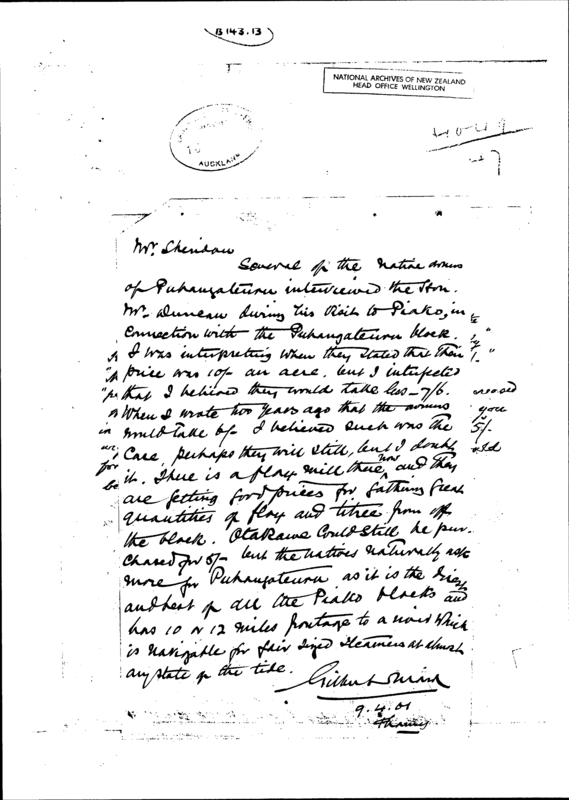 B 143.13
NATIONAL ARCHIVES OF NEW ZEALAND
HEAD OFFICE WELLINGTON
AUCKLAND
Mr. Sheridan
Several of the Native owners
of Puhangateuru interviewed the Hon.
Mr. Duncan during his visit to Piako, in
connection with the Puhangateuru block.
I was interpreting when they stated that their
price was 10/- an acre. but I
that I believed they would take less – 7/6.
When I wrote two years ago that the owners
would take 6/- I believed such was the
case, perhaps they will still, but I doubt
it. There is a flax mill there now and they
are getting good prices for gathering great
quantities of flax and titree from off
the block. Otakawe could still be pur-
chased for 5/- but the natives naturally ask
more for Puhangateuru as it is the
and best of all the Piako blocks and
has 10 or 12 miles frontage to a river which
is navigable for fair sized steamers at almost
any state of the tide.
Gilbert Mair
9.4.01
Thames
you
5/-